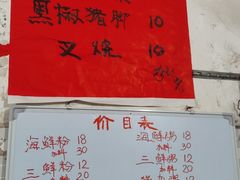 黑椒猪脚 10
叉烧 10
价目表
海鲜粉 18
加料 30
三鲜粉 12
加料 20
海鲜粥 18
加料 30
三鲜粥 12
加料 20